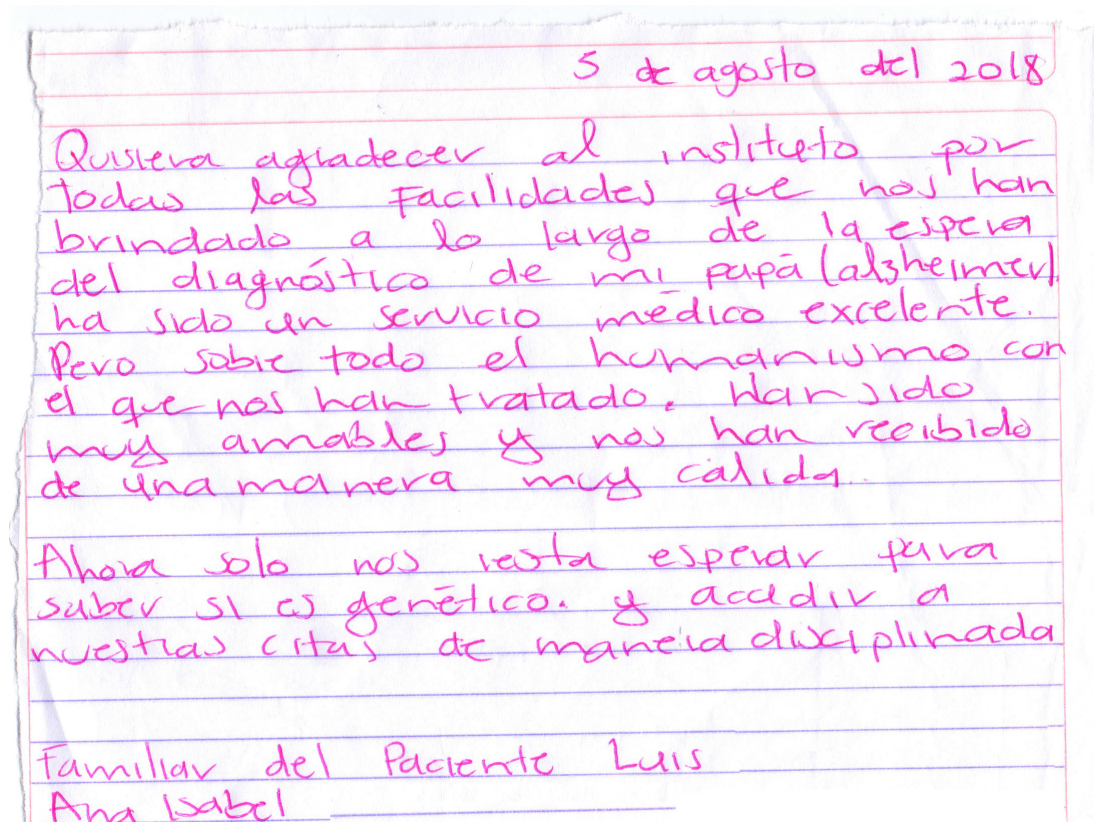 5 de agosto del 2018
Quisiera agradecer al instituto por
todas las Facilidades que nos han
brindado a lo largo de la espera
del diagnóstico de mi papá (alsheimer)
ha sido un servicio médico excelente.
Pero sobre todo el humanismo con
el que nos han tratado. Han sido
muy amables y nos han recibido
de una manera muy cálida.
Ahora solo nos resta esperar para
saber si es genético. y acudir a
nuestras citas de manera disciplinada
Familiar del Paciente Luis
Ana Isabel